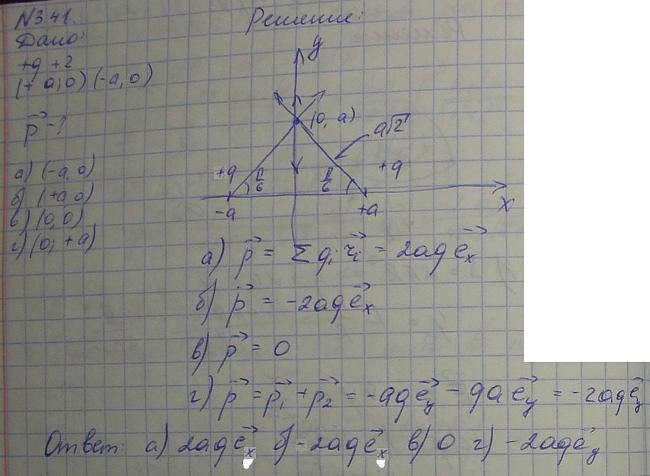 N3.41.
Решение:
Дано:
+q +q
(+a,0) (-a,0)
p⃗ - ?
а) (-a,0)
б) (+a,0)
в) (0,0)
г) (0, +a)
y
(0, a)
a√2
+q
π/6
π/6
+q
-a
+a
x
а) p⃗ = Σ qᵢ r⃗ᵢ = 2aq e⃗ₓ
б) p⃗ = -2aq e⃗ₓ
в) p⃗ = 0
г) p⃗ = p⃗₁ + p⃗₂ = -aq e⃗_y - qa e⃗_y = -2aq e⃗_y
Ответ: а) 2aq e⃗ₓ б) -2aq e⃗ₓ в) 0 г) -2aq e⃗_y